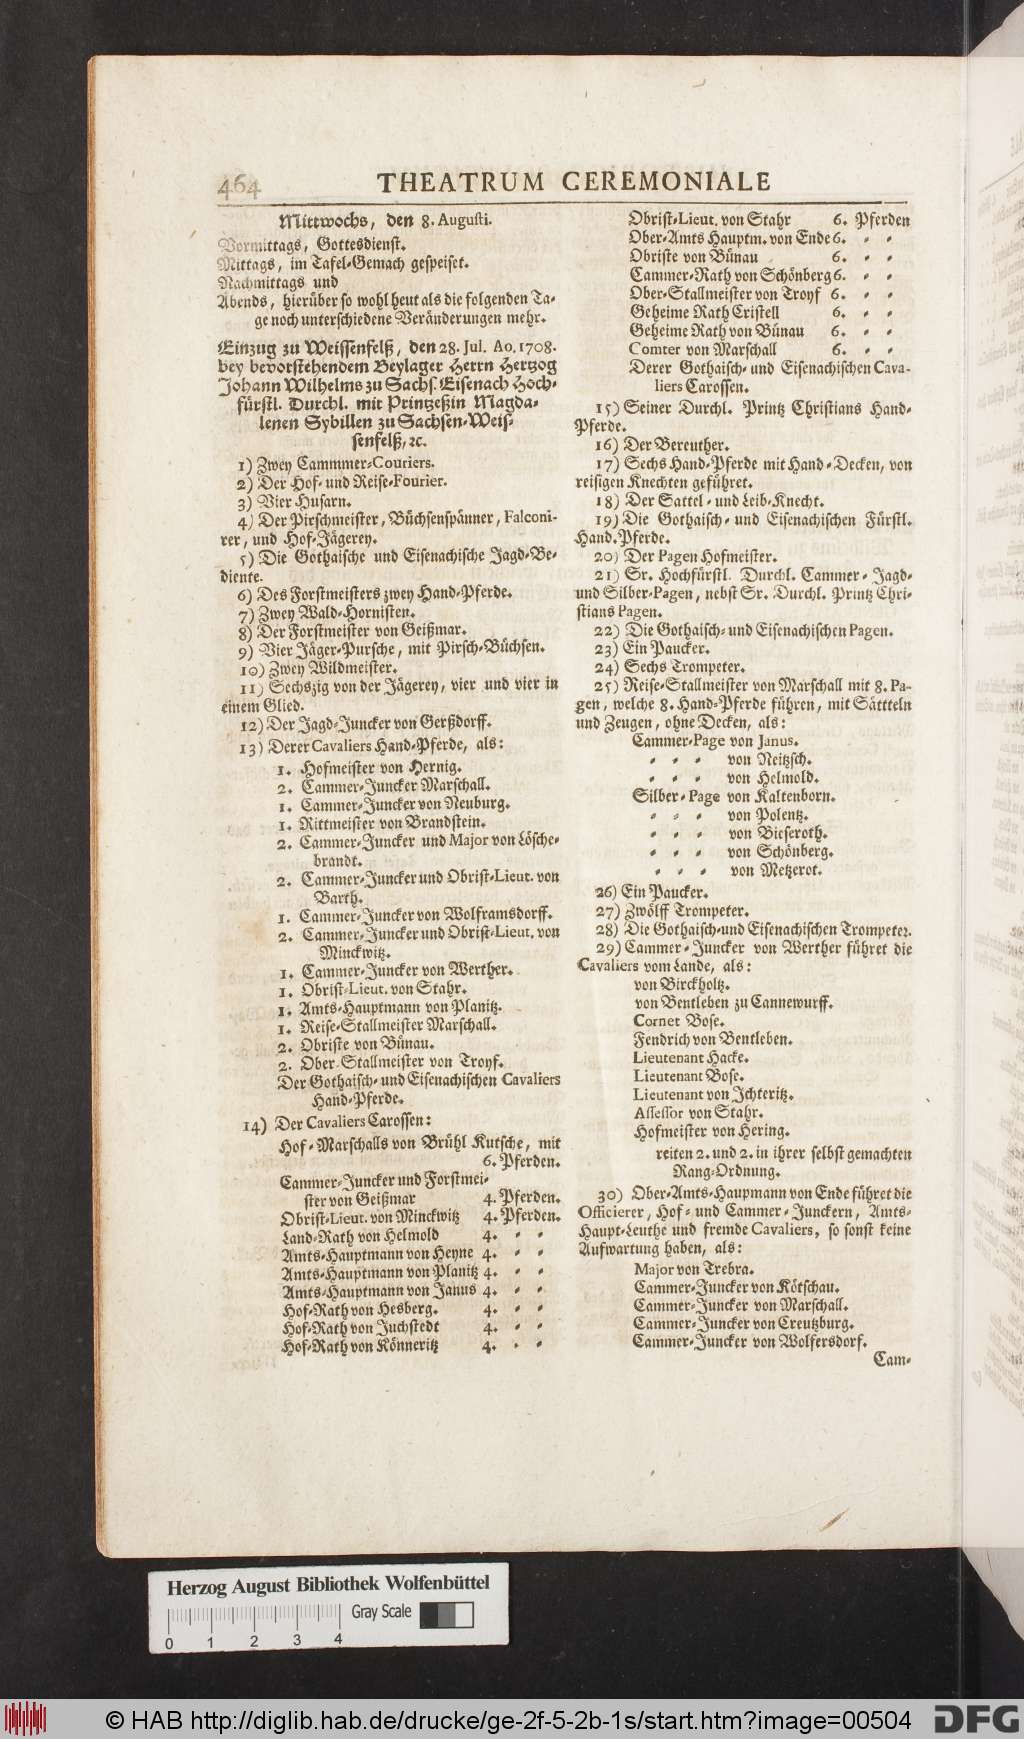 464
THEATRUM CEREMONIALE
Mittwochs, den 8. Augusti.
Vormittags, Gottesdienst.
Mittags, im Tafel-Gemach gespeiset.
Nachmittags und
Abends, hierüber so wohl heut als die folgenden Ta-
ge noch unterschiedene Veränderungen mehr.
Einzug zu Weissenfelß, den 28. Jul. Ao. 1708.
bey bevorstehendem Beylager Herrn Hertzog
Johann Wilhelms zu Sachs. Eisenach Hoch-
fürstl. Durchl. mit Printzeßin Magda-
lenen Sybillen zu Sachsen-Weis-
senfelß, ꝛc.
1) Zwey Cammmer-Couriers.
2) Der Hof- und Reise-Fourier.
3) Vier Husarn.
4) Der Pirschmeister, Büchsenspänner, Falconi-
rer, und Hof-Jägerey.
5) Die Gothaische und Eisenachische Jagd-Be-
diente.
6) Des Forstmeisters zwey Hand-Pferde.
7) Zwey Wald-Hornisten.
8) Der Forstmeister von Geißmar.
9) Vier Jäger-Pursche, mit Pirsch-Büchsen.
10) Zwey Wildmeister.
11) Sechszig von der Jägerey, vier und vier in
einem Glied.
12) Der Jagd-Juncker von Gerßdorff.
13) Derer Cavaliers Hand-Pferde, als:
1. Hofmeister von Hernig.
2. Cammer-Juncker Marschall.
1. Cammer-Juncker von Neuburg.
1. Rittmeister von Brandstein.
2. Cammer-Juncker und Major von Lösche-
brandt.
2. Cammer-Juncker und Obrist-Lieut. von
Barth.
1. Cammer-Juncker von Wolframsdorff.
2. Cammer-Juncker und Obrist-Lieut. von
Minckwitz.
1. Cammer-Juncker von Werther.
1. Obrist-Lieut. von Stahr.
1. Amts-Hauptmann von Planitz.
1. Reise-Stallmeister Marschall.
2. Obriste von Bünau.
2. Ober-Stallmeister von Troyf.
Der Gothaisch- und Eisenachischen Cavaliers
Hand-Pferde.
14) Der Cavaliers Carossen:
Hof-Marschalls von Brühl Kutsche, mit
6. Pferden.
Cammer-Juncker und Forstmei-
ster von Geißmar 4. Pferden.
Obrist-Lieut. von Minckwitz 4. Pferden.
Land-Rath von Helmold 4. - -
Amts-Hauptmann von Heyne 4. - -
Amts-Hauptmann von Planitz 4. - -
Amts-Hauptmann von Janus 4. - -
Hof-Rath von Hesberg. 4. - -
Hof-Rath von Juchstedt 4. - -
Hof-Rath von Könneritz 4. - -
Obrist-Lieut. von Stahr 6. Pferden
Ober-Amts Hauptm. von Ende 6. - -
Obriste von Bünau 6. - -
Cammer-Rath von Schönberg 6. - -
Ober-Stallmeister von Troyf 6. - -
Geheime Rath Cristell 6. - -
Geheime Rath von Bünau 6. - -
Comter von Marschall 6. - -
Derer Gothaisch- und Eisenachischen Cava-
liers Carossen.
15) Seiner Durchl. Printz Christians Hand-
Pferde.
16) Der Bereuther.
17) Sechs Hand-Pferde mit Hand-Decken, von
reisigen Knechten geführet.
18) Der Sattel- und Leib-Knecht.
19) Die Gothaisch- und Eisenachischen Fürstl.
Hand-Pferde.
20) Der Pagen Hofmeister.
21) Sr. Hochfürstl. Durchl. Cammer- Jagd-
und Silber-Pagen, nebst Sr. Durchl. Printz Chri-
stians Pagen.
22) Die Gothaisch- und Eisenachischen Pagen.
23) Ein Paucker.
24) Sechs Trompeter.
25) Reise-Stallmeister von Marschall mit 8. Pa-
gen, welche 8. Hand-Pferde führen, mit Sättteln
und Zeugen, ohne Decken, als:
Cammer-Page von Janus.
- - - von Neitzsch.
- - - von Helmold.
Silber-Page von Kaltenborn.
- - - von Polentz.
- - - von Bieseroth.
- - - von Schönberg.
- - - von Metzerot.
26) Ein Paucker.
27) Zwölff Trompeter.
28) Die Gothaisch- und Eisenachischen Trompeter.
29) Cammer-Juncker von Werther führet die
Cavaliers vom Lande, als:
von Birckholtz.
von Bentleben zu Cannewurff.
Cornet Bose.
Fendrich von Bentleben.
Lieutenant Hacke.
Lieutenant Bose.
Lieutenant von Ichteritz.
Assessor von Stahr.
Hofmeister von Hering.
reiten 2. und 2. in ihrer selbst gemachten
Rang-Ordnung.
30) Ober-Amts-Haupmann von Ende führet die
Officierer, Hof- und Cammer-Junckern, Amts-
Haupt-Leuthe und fremde Cavaliers, so sonst keine
Aufwartung haben, als:
Major von Trebra.
Cammer-Juncker von Kötschau.
Cammer-Juncker von Marschall.
Cammer-Juncker von Creutzburg.
Cammer-Juncker von Wolfersdorf.
Cam-
Herzog August Bibliothek Wolfenbüttel
Gray Scale
0 1 2 3 4
© HAB http://diglib.hab.de/drucke/ge-2f-5-2b-1s/start.htm?image=00504
DFG